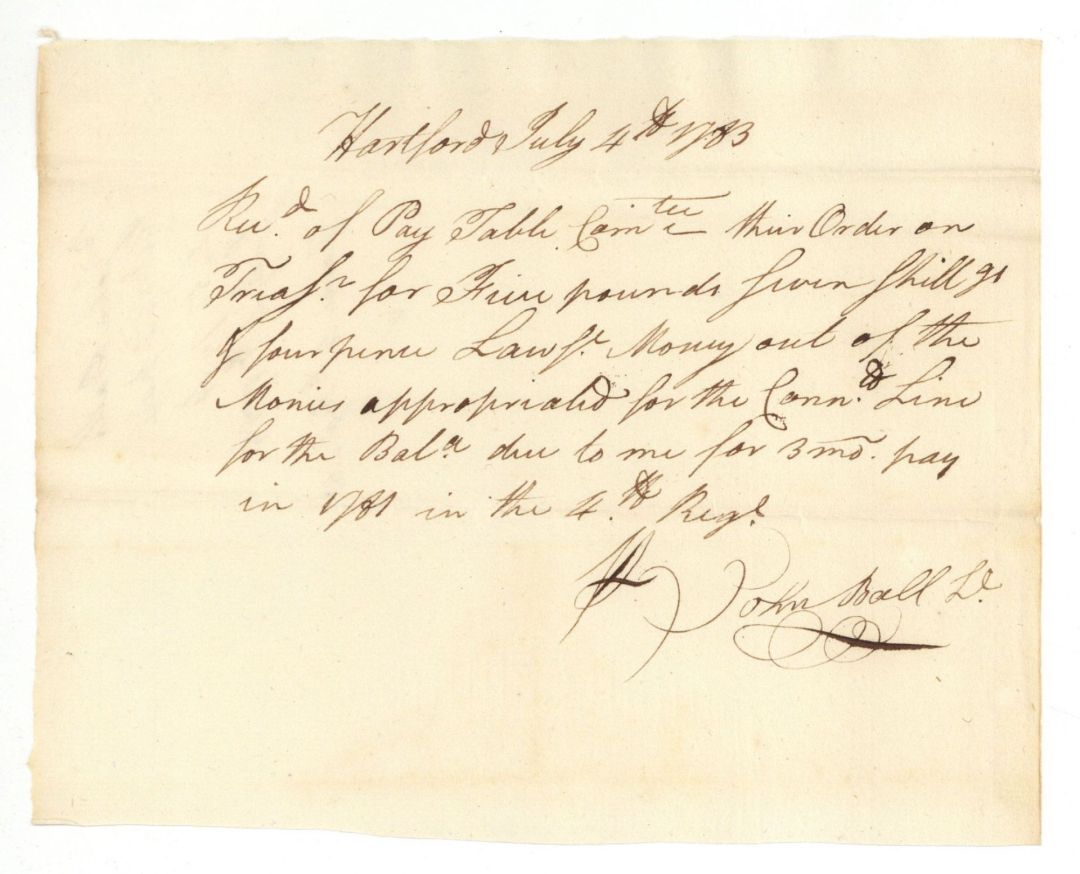 Hartford July 4th 1783
Recd. of Pay Table Comtee their Order on
Treasr. for Five pounds seven shillgs
& four pence Lawfl. Money out of the
Monies appropriated for the Connctt Line
for the Bala. due to me for 3 mo. pay
in 1781 in the 4th Regt.
John Ball Lt.